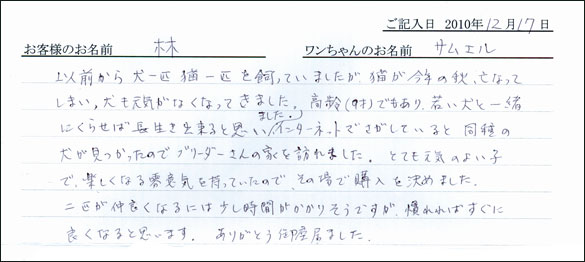 ご記入日 2010年12月17日
お客様のお名前 林 ワンちゃんのお名前 サムエル
以前から犬一匹猫一匹を飼っていましたが、猫が今年の秋、亡なって
しまい、犬も元気がなくなってきました。高齢(9才)でもあり、若い犬と一緒
にくらせば長生き出来ると思いました。インターネットでさがしていると同種の
犬が見つかったのでブリーダーさんの家を訪れました。とても元気のよい子
で、楽しくなる雰意気を持っていたので、その場で購入を決めました。
二匹が仲良くなるには少し時間がかかりそうですが、慣れればすぐに
良くなると思います。ありがとう御座居ました。